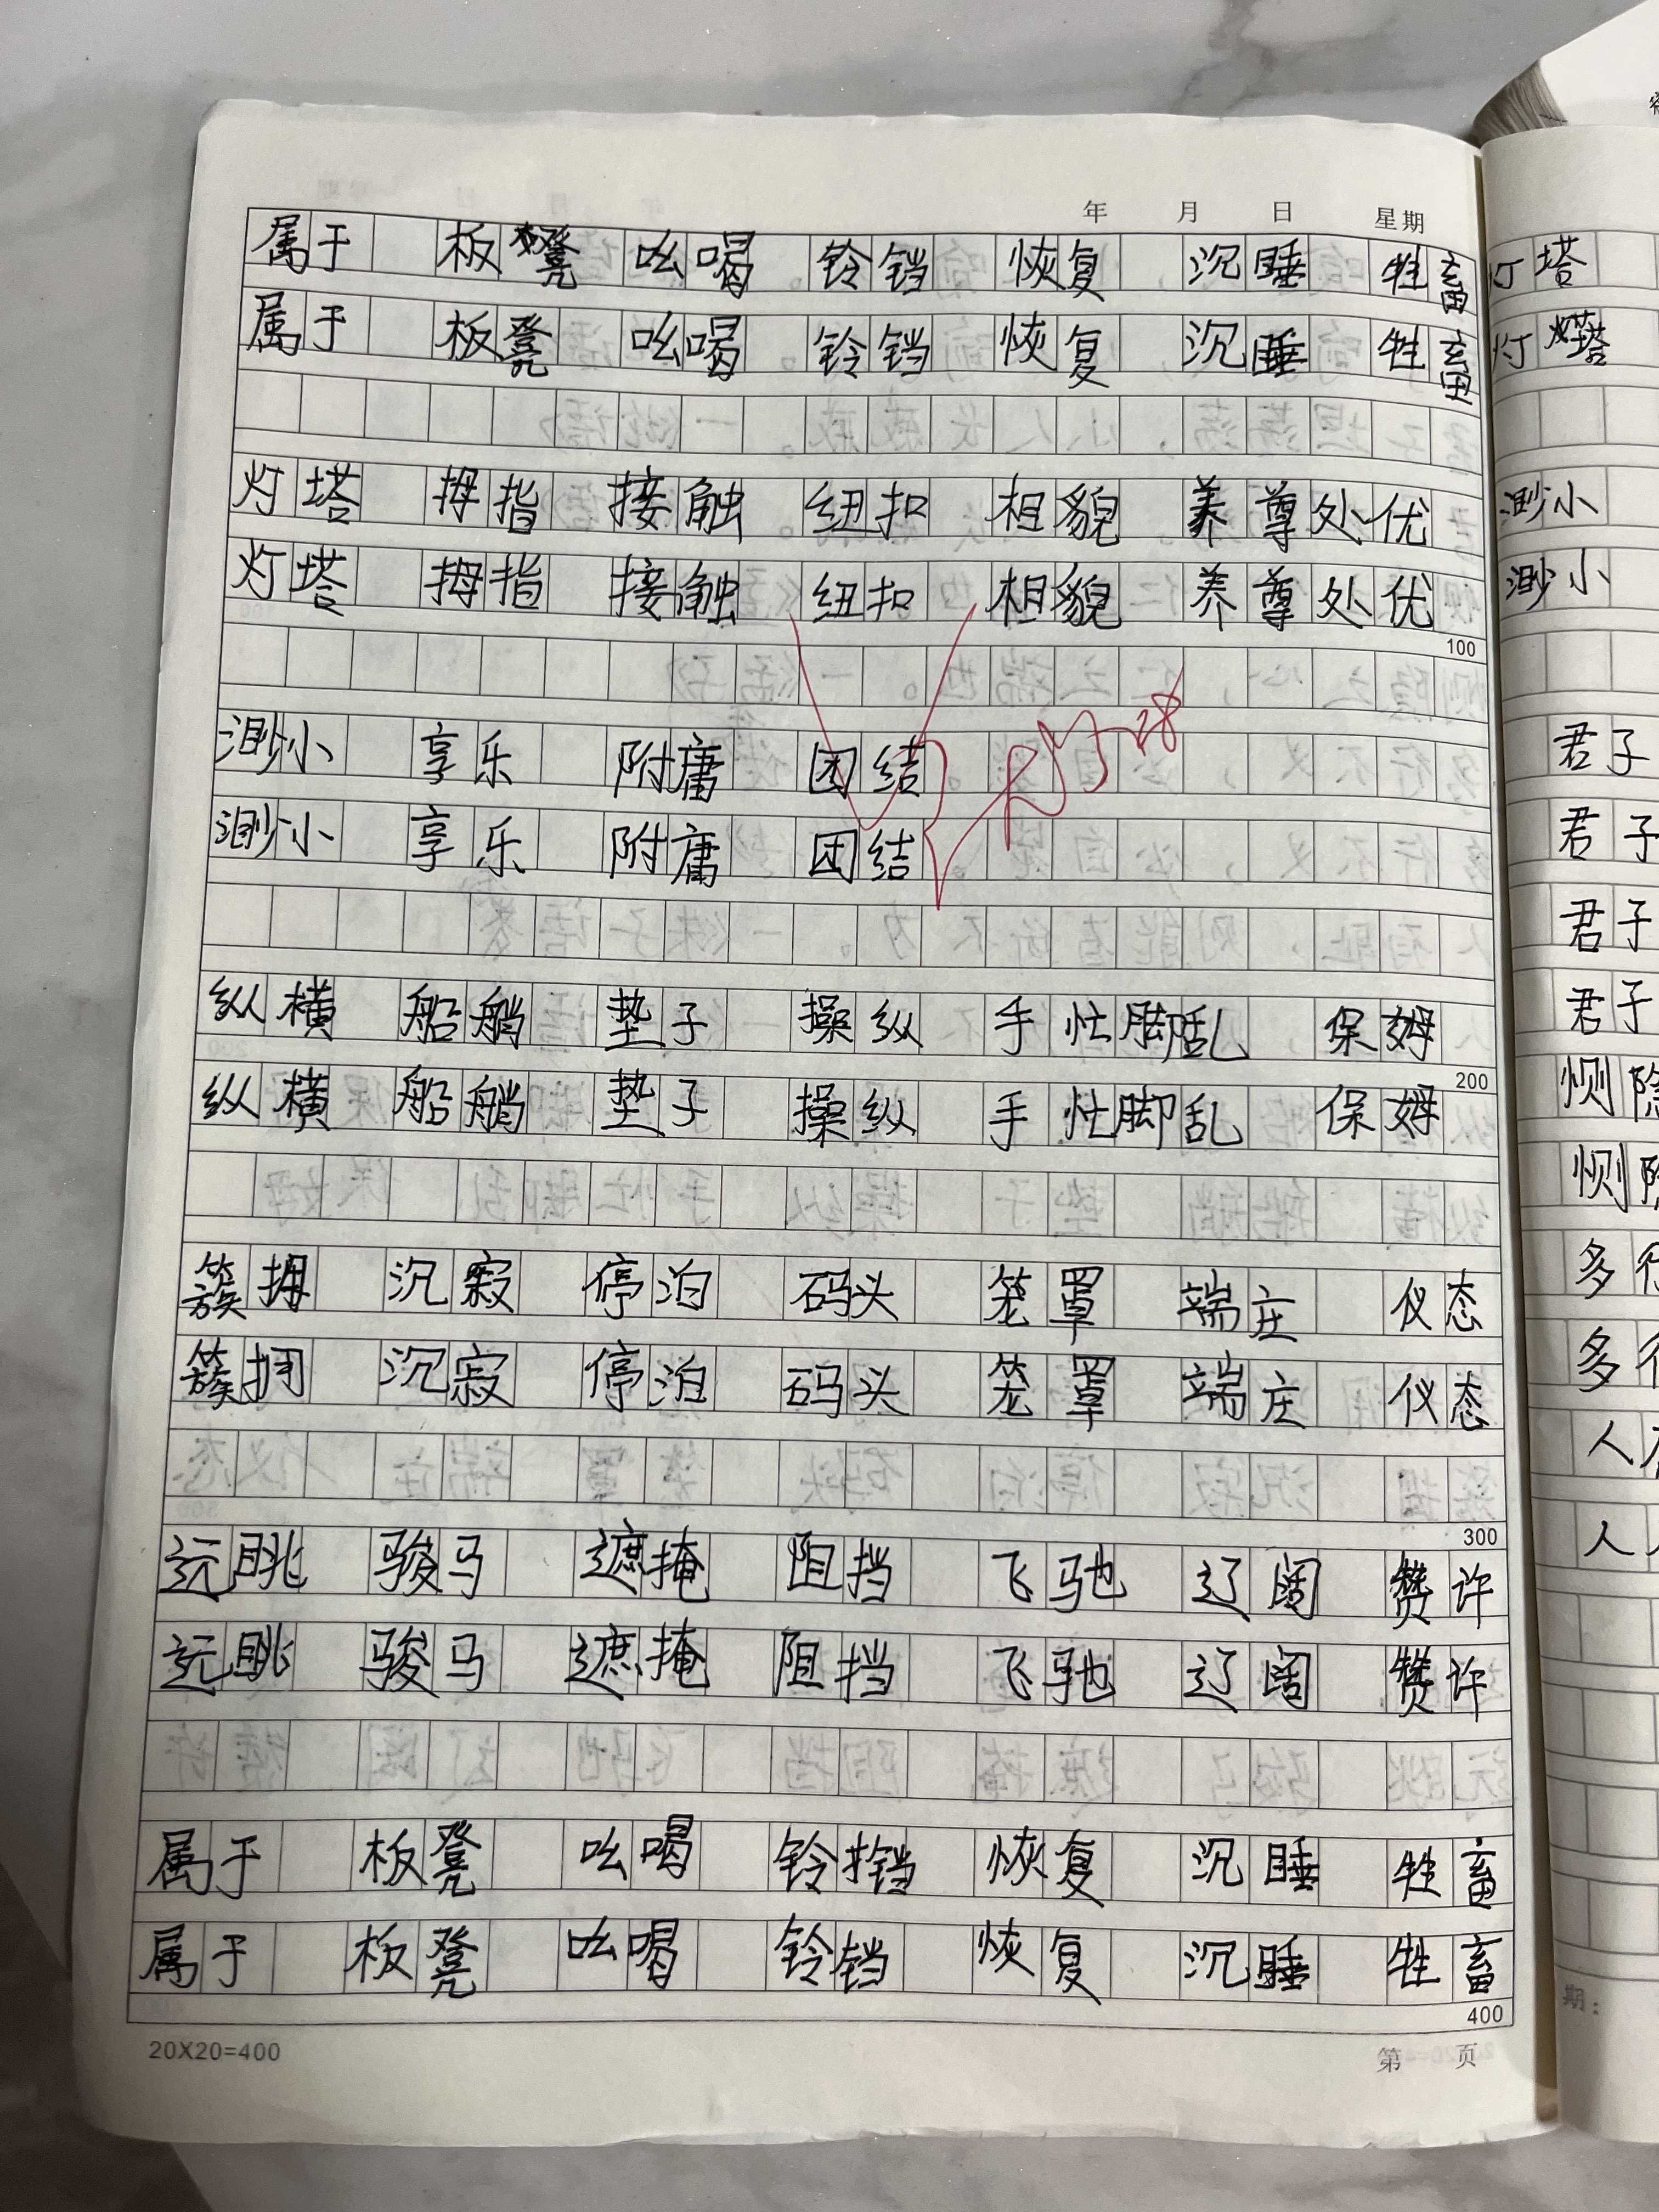 年 月 日 星期
属于 板凳 吆喝 铃铛 恢复 沉睡 牲畜
属于 板凳 吆喝 铃铛 恢复 沉睡 牲畜
灯塔 拇指 接触 纽扣 相貌 养尊处优
灯塔 拇指 接触 纽扣 相貌 养尊处优
100
渺小 享乐 附庸 团结
渺小 享乐 附庸 团结
纵横 船艄 垫子 操纵 手忙脚乱 保姆
200
纵横 船艄 垫子 操纵 手忙脚乱 保姆
簇拥 沉寂 停泊 码头 笼罩 端庄 仪态
簇拥 沉寂 停泊 码头 笼罩 端庄 仪态
300
远眺 骏马 遮掩 阻挡 飞驰 辽阔 赞许
远眺 骏马 遮掩 阻挡 飞驰 辽阔 赞许
属于 板凳 吆喝 铃铛 恢复 沉睡 牲畜
属于 板凳 吆喝 铃铛 恢复 沉睡 牲畜
400
20X20=400 第 页
灯塔
灯塔
渺小
渺小
君子
君子
君子
君子
恻隐
恻隐
多行
多行
人
人
期：